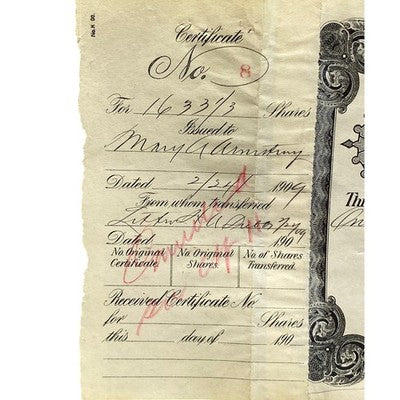 No. H 90.
Certificate
No. 8
For 1633 1/3 Shares
Issued to
Mary A Armstrong
Dated 2/24 1909
From whom transferred
Dated 190
No. Original Certificate. No. Original Shares. No. of Shares Transferred.
Received Certificate No
for Shares
this day of 190
Th